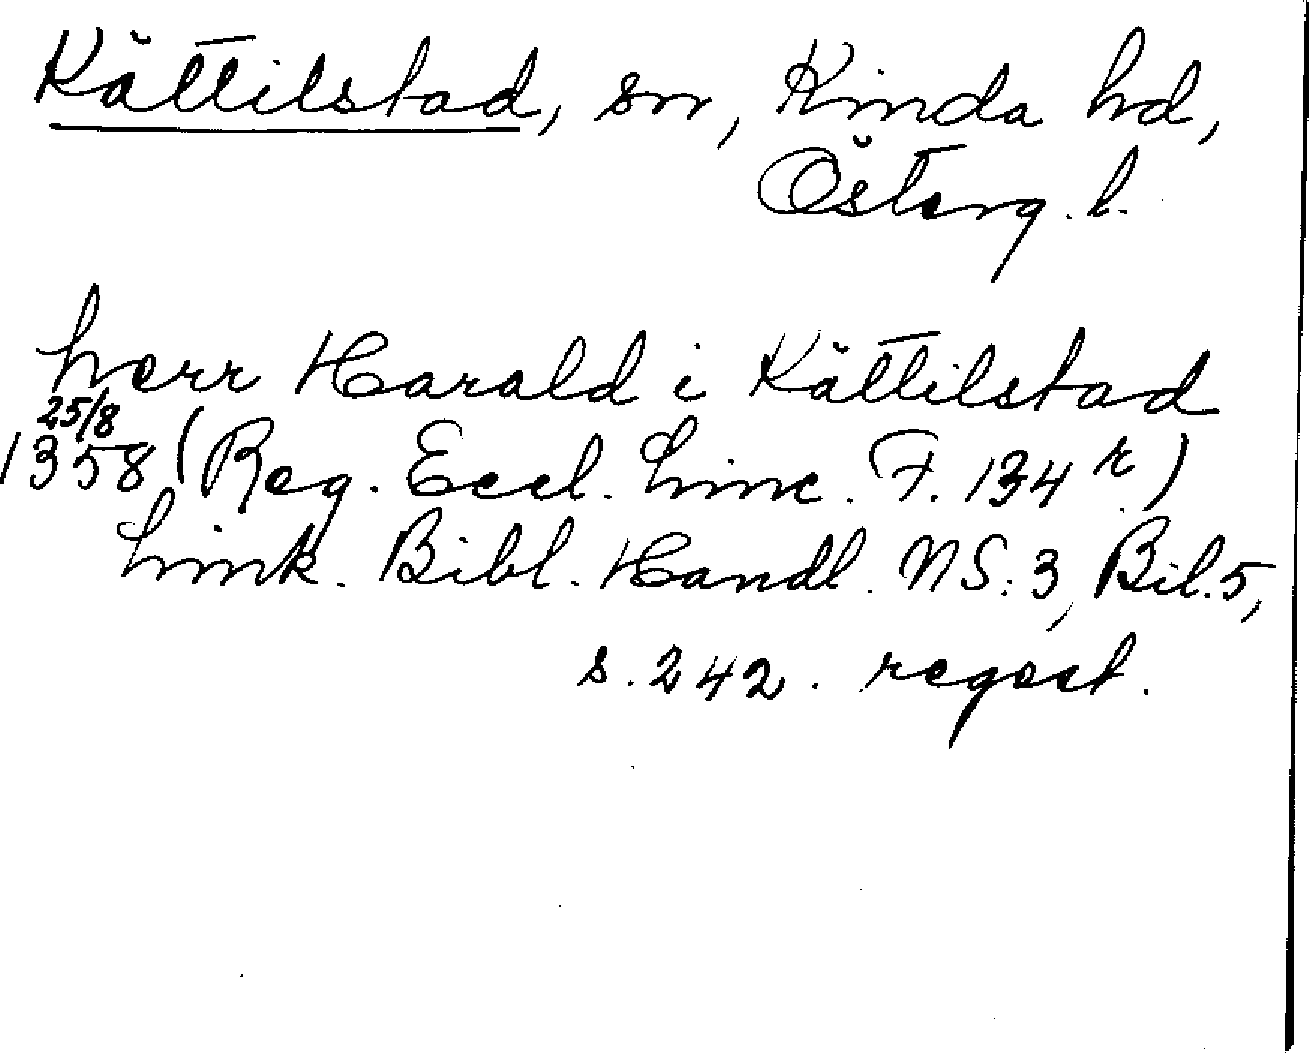 Kättilstad, sn, Kinda hd,
Österg. l.
herr Harald i Kättilstad
25/8
1358 (Reg. Eccl. Linc. F. 134 r)
Link. Bibl. Handl. NS: 3, Bil. 5,
s. 242. regest.